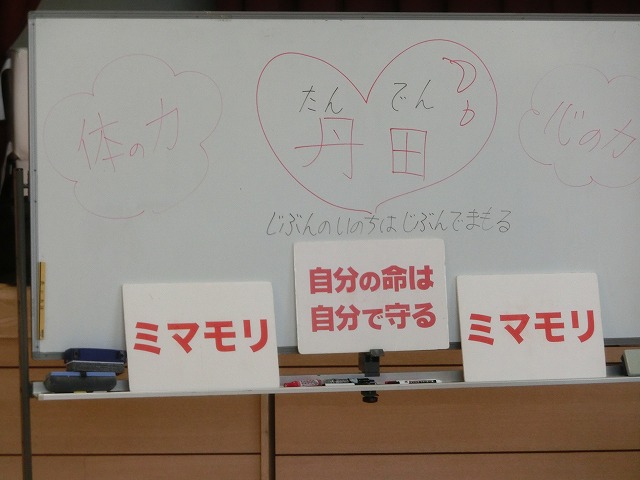 体の力
たん でん
丹田
の力
心の力
じぶんのいのちはじぶんでまもる
ミマモリ
自分の命は
自分で守る
ミマモリ